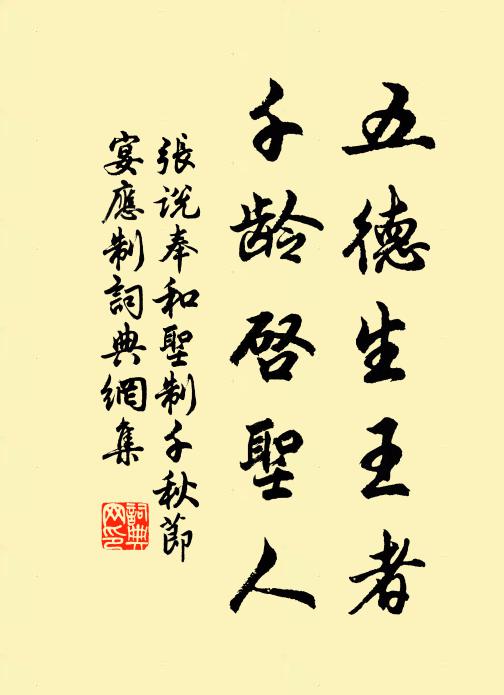 五德生王者
千龄啓聖人
張説奉和聖制千秋節
宴應制詞典網集
詞典
网印